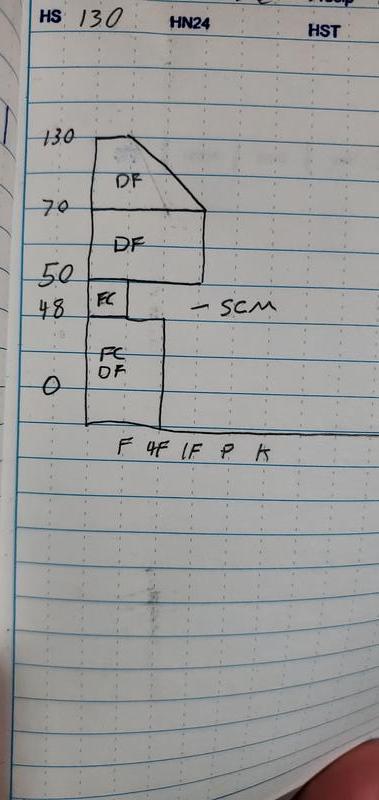 HS 130 HN24 HST
130
DF
70
DF
50
FC
48 - SCM
FC
DF
0
F 4F 1F P K